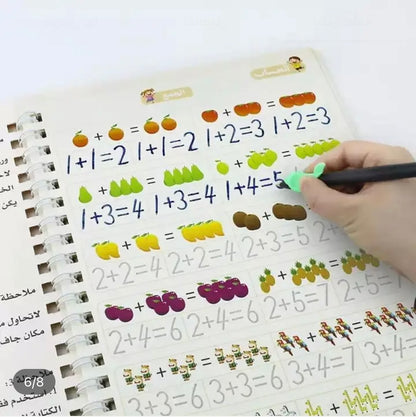 الحساب
الجمع
1+1=2 1+1=2 1+2=3 1+2=3
1+3=4 1+3=4 1+4=5
2+2=4 2+2=4 2+3=5 2
2+4=6 2+4=6 2+5=7 2+5=7
3+3=6 3+3=6 3+4=7 3+4
ملاحظة
لاتحاول
مكان جاف
6/8